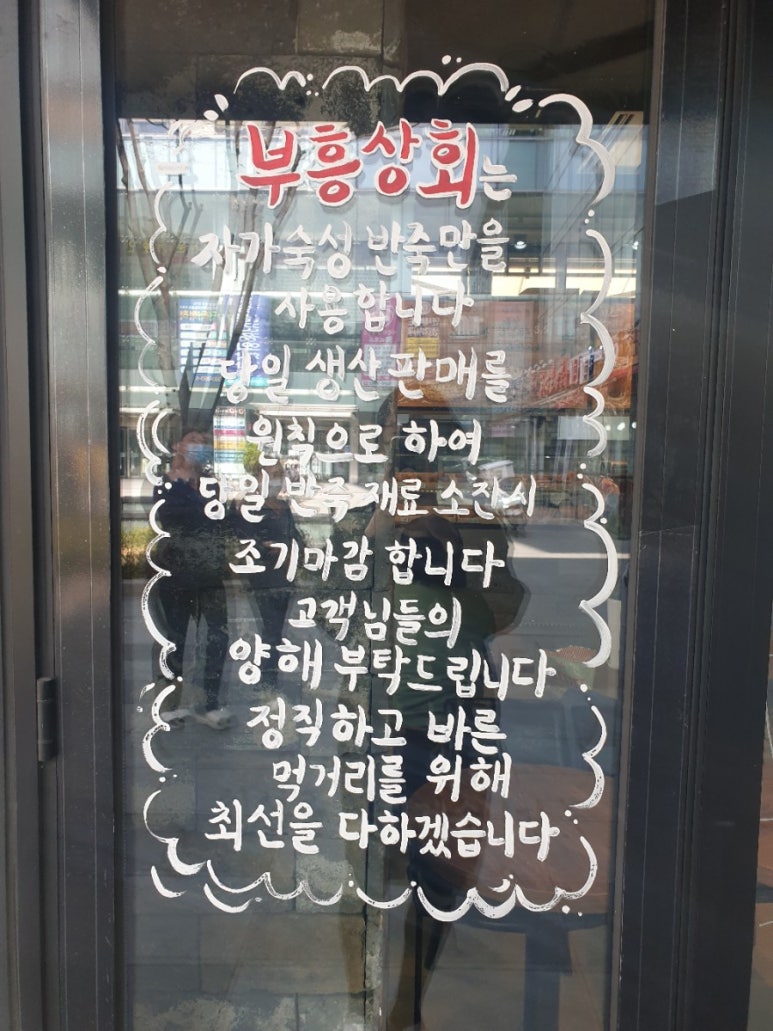 부흥상회는
자가숙성 반죽만을
사용합니다
당일 생산 판매를
원칙으로 하여
당일 반죽 재료 소진시
조기마감 합니다
고객님들의
양해 부탁드립니다
정직하고 바른
먹거리를 위해
최선을 다하겠습니다